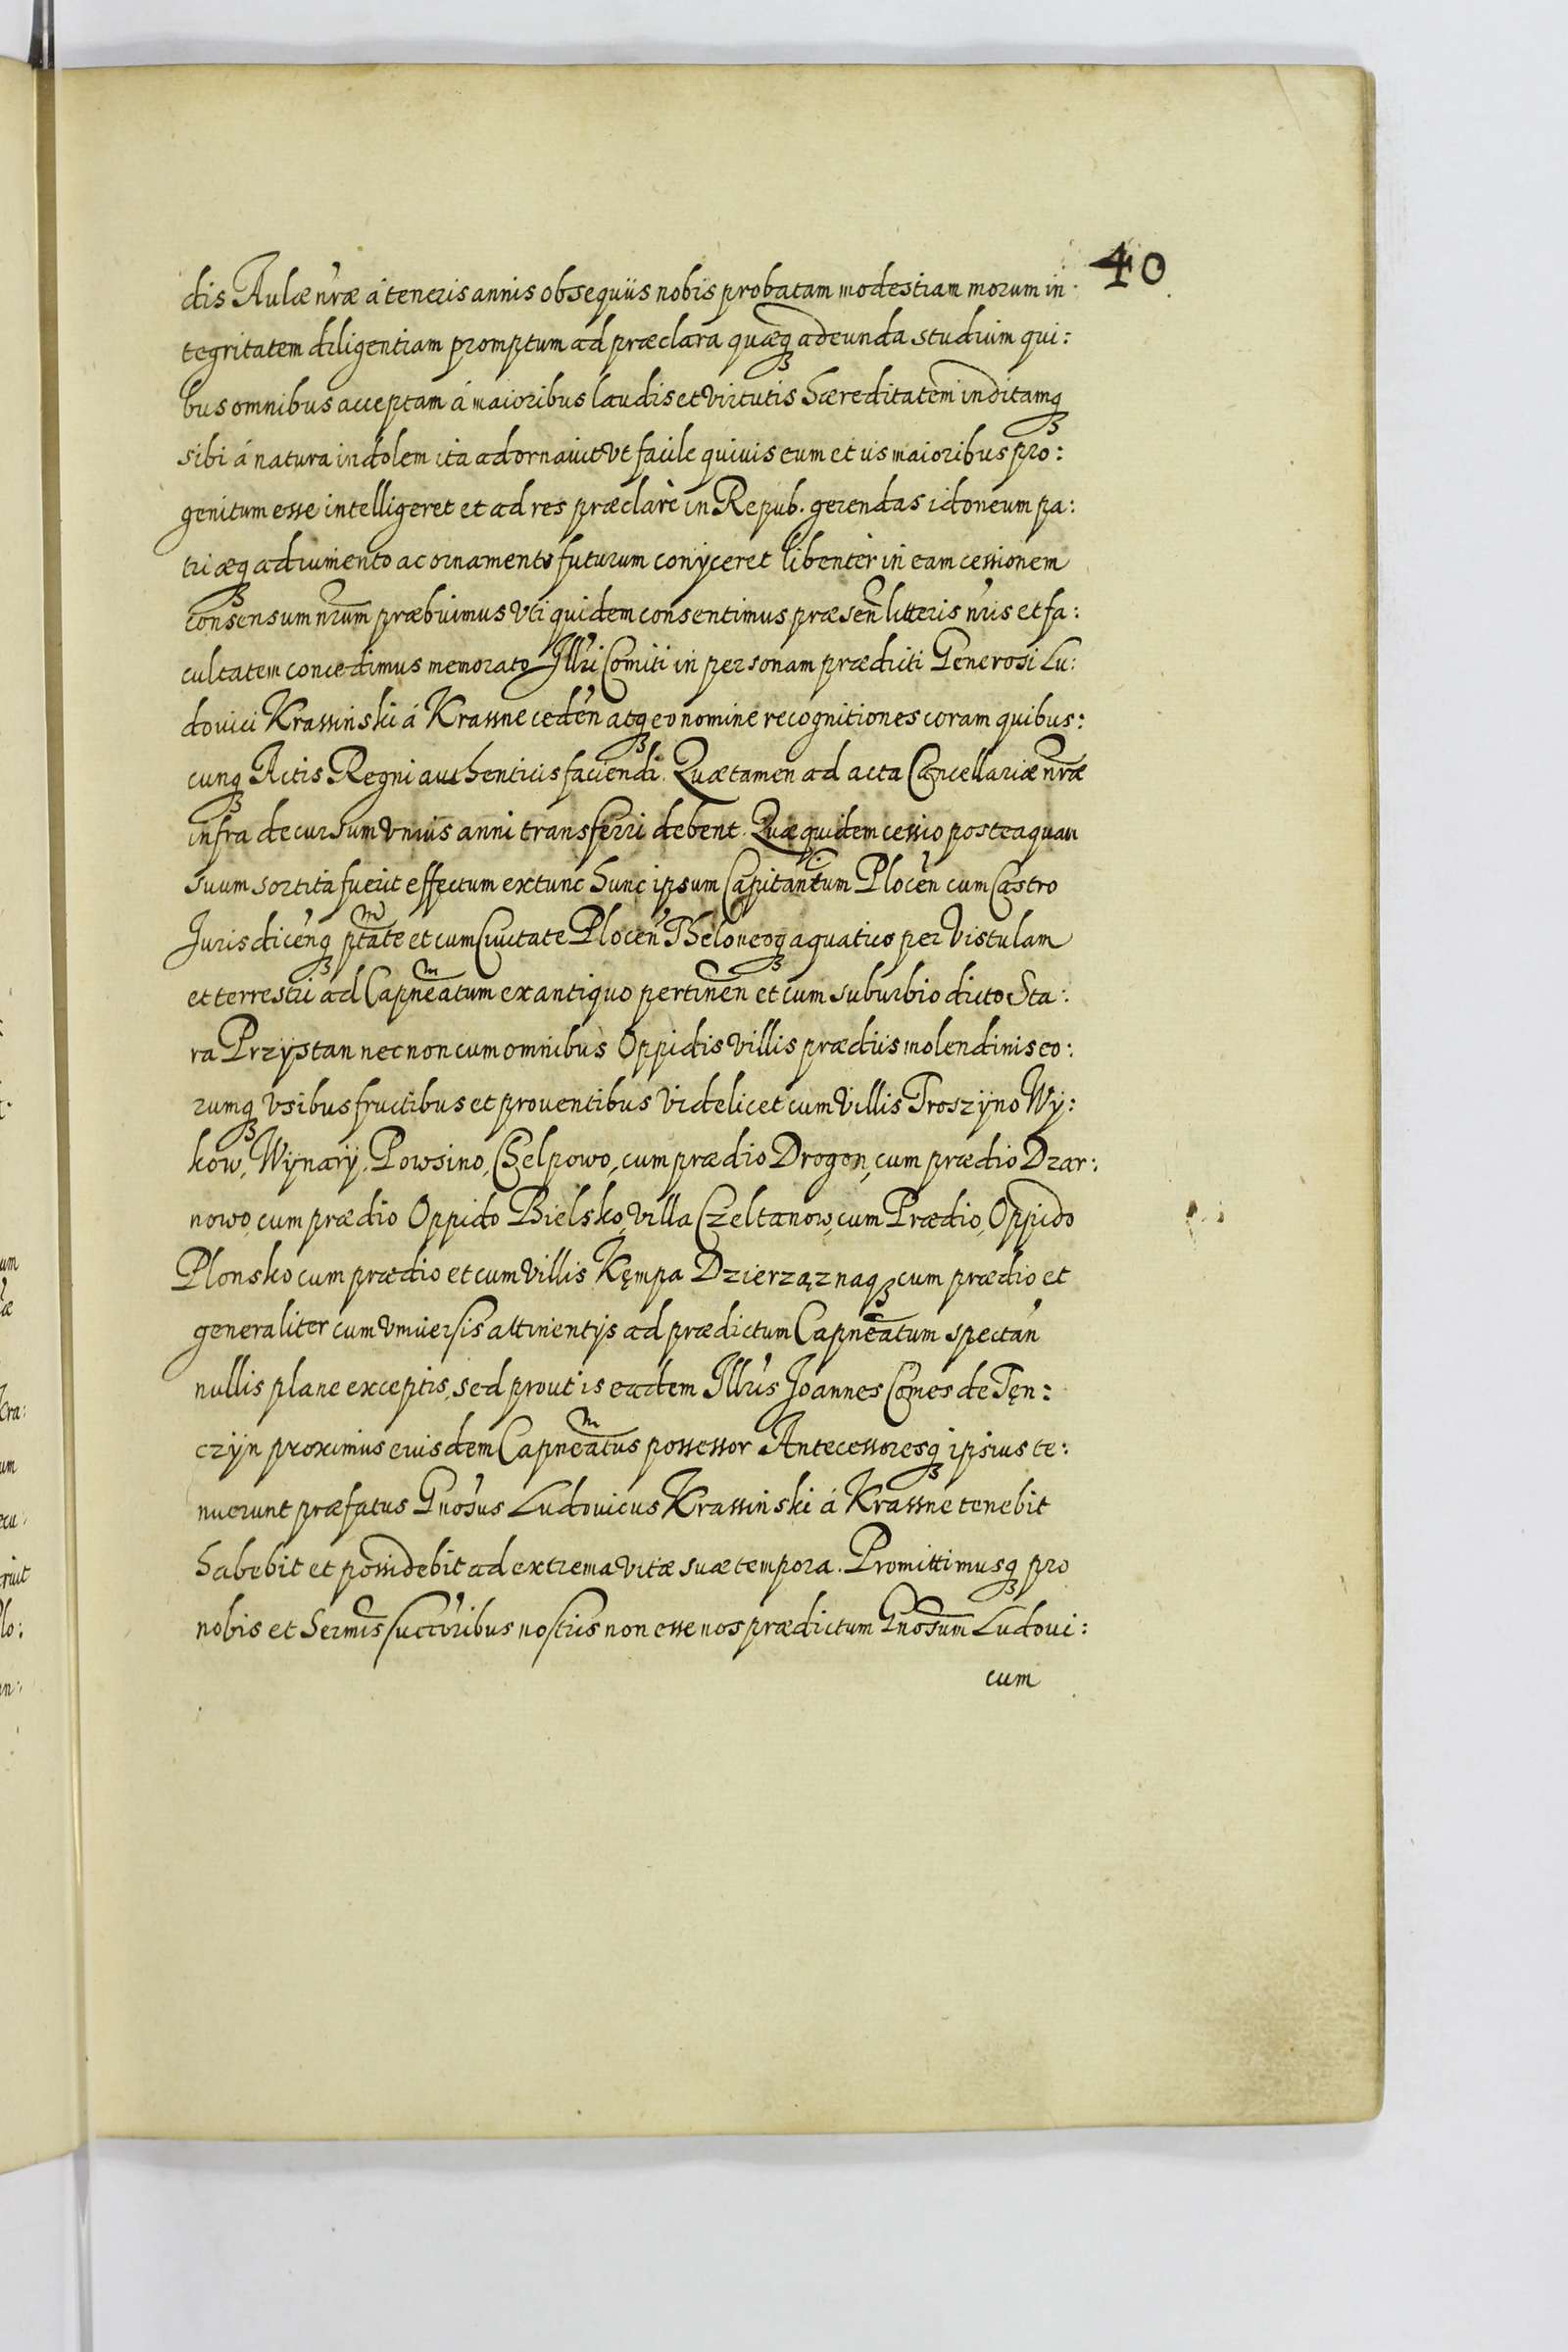 40
dis Aulæ nr̃æ á teneris annis obsequiis nobis probatam modestiam morum in
tegritatem diligentiam promptum ad præclara quæq3 adeunda studium qui:
bus omnibus acceptam á maioribus laudis et virtutis hæreditatem inditamq3
sibi á natura indolem ita adornauit vt facile quiuis eum et iis maioribus pro:
genitum esse intelligeret et ad res præclarè in Repub. gerendas idoneum pa:
triæq3 adiumento ac ornamento futurum conijceret libentèr in eam cessionem
consensum nr̃um præbuimus vti quidem consentimus præsen̄ litteris nr̃is et fa:
cultatem concedimus memorato Illr̃i Comiti in personam prædicti Generosi Lu:
douici Krassinski á Krassne ceden̄ atq3 eo nomine recognitiones coram quibus:
cunq3 Actis Regni authenticis faciendi. Quæ tamen ad acta Cancellariæ nr̃æ
infra decursum vnius anni transferri debent. Quæ quidem cessio posteaquam
suum sortita fuerit effectum extunc hunc ipsum Capitan̄tum Plocen̄ cum Castro
Iurisdicen̄q3 ptãte et cum Ciuitate Plocen̄ Theloneoq3 aquatico per Vistulam
et terrestri ad Capneãtum ex antiquo pertinen̄ et cum suburbio dicto Sta:
ra Przystan nec non cum omnibus Oppidis villis prædiis molendinis eo:
rumq3 vsibus fructibus et prouentibus videlicet cum villis Troszyno Wy:
kow, Wynary, Powsino, Czelpowo, cum prædio Drogon, cum prædio Dzar:
nowo, cum prædio Oppido Bielsko, villa Czeltanow, cum Prædio, Oppido
Plonsko cum prædio et cum villis Kępa Dzierząznaq3 cum prædio et
generaliter cum vniuersis attinentijs ad prædictum Capneãtum spectan̄
nullis plane exceptis, sed prout is eadem Illr̃is Joannes Comes de Tęn:
czyn proximus eiusdem Capneãtus possessor Antecessoresq3 ipsius te:
nuerunt præfatus Gnõsus Ludouicus Krassinski á Krassne tenebit
habebit et possidebit ad extrema vitæ suæ tempora. Promittimusq3 pro
nobis et Sermĩs succr̃ibus nostris non esse nos prædictum Gnõsum Ludoui:
cum